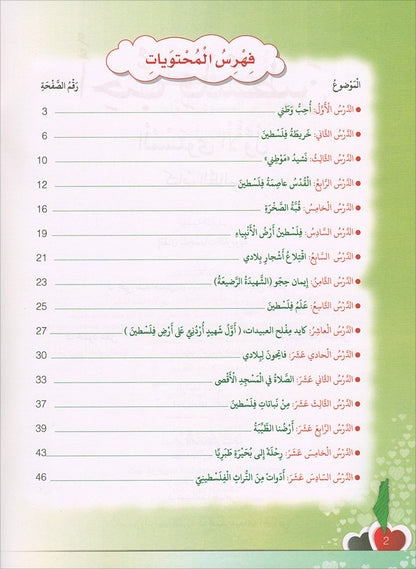 فِهْرِسُ الْمُحْتَوَياتِ
الْمَوْضوعُ رَقْمُ الصَّفْحَةِ
الدَّرْسُ الْأَوَّلُ: أُحِبُّ وَطَني 3
الدَّرْسُ الثّاني: خَريطَةُ فِلَسْطينَ 6
الدَّرْسُ الثّالِثُ: نَشيد «مَوْطِني» 10
الدَّرْسُ الرّابِعُ: الْقُدْسُ عاصِمَةُ فِلَسْطينَ 12
الدَّرْسُ الْخامِسُ: قُبَّةُ الصَّخْرَةِ 16
الدَّرْسُ السّادِسُ: فِلَسْطينُ أَرْضُ الْأَنْبِياءِ 19
الدَّرْسُ السّابِعُ: اقْتِلاعُ أَشْجارِ بِلادي 21
الدَّرْسُ الثّامِنُ: إيمان حِجّو (الشَّهيدَةُ الرَّضيعَةُ) 23
الدَّرْسُ التّاسِعُ: عَلَمُ فِلَسْطينَ 25
الدَّرْسُ الْعاشِرُ: كايد مِفْلح العبيدات، ( أَوَّلُ شَهيدٍ أُرْدُنِيٍّ عَلى أَرْضِ فِلَسْطينَ ) 27
الدَّرْسُ الْحادي عَشَرَ: فاتِحونَ لِبِلادي 30
الدَّرْسُ الثّاني عَشَرَ: الصَّلاةُ في الْمَسْجِدِ الْأَقْصى 33
الدَّرْسُ الثّالِثَ عَشَرَ: مِنْ نَباتاتِ فِلَسْطينَ 37
الدَّرْسُ الرّابِعَ عَشَرَ: أَرْضُنا الطَّيِّبَةُ 39
الدَّرْسُ الْخامِسَ عَشَرَ: رِحْلَةٌ إِلى بُحَيْرَةِ طَبَرِيّا 43
الدَّرْسُ السّادِسَ عَشَرَ: أَدَواتٌ مِنَ التُّراثِ الْفِلَسْطينِيِّ 46
2